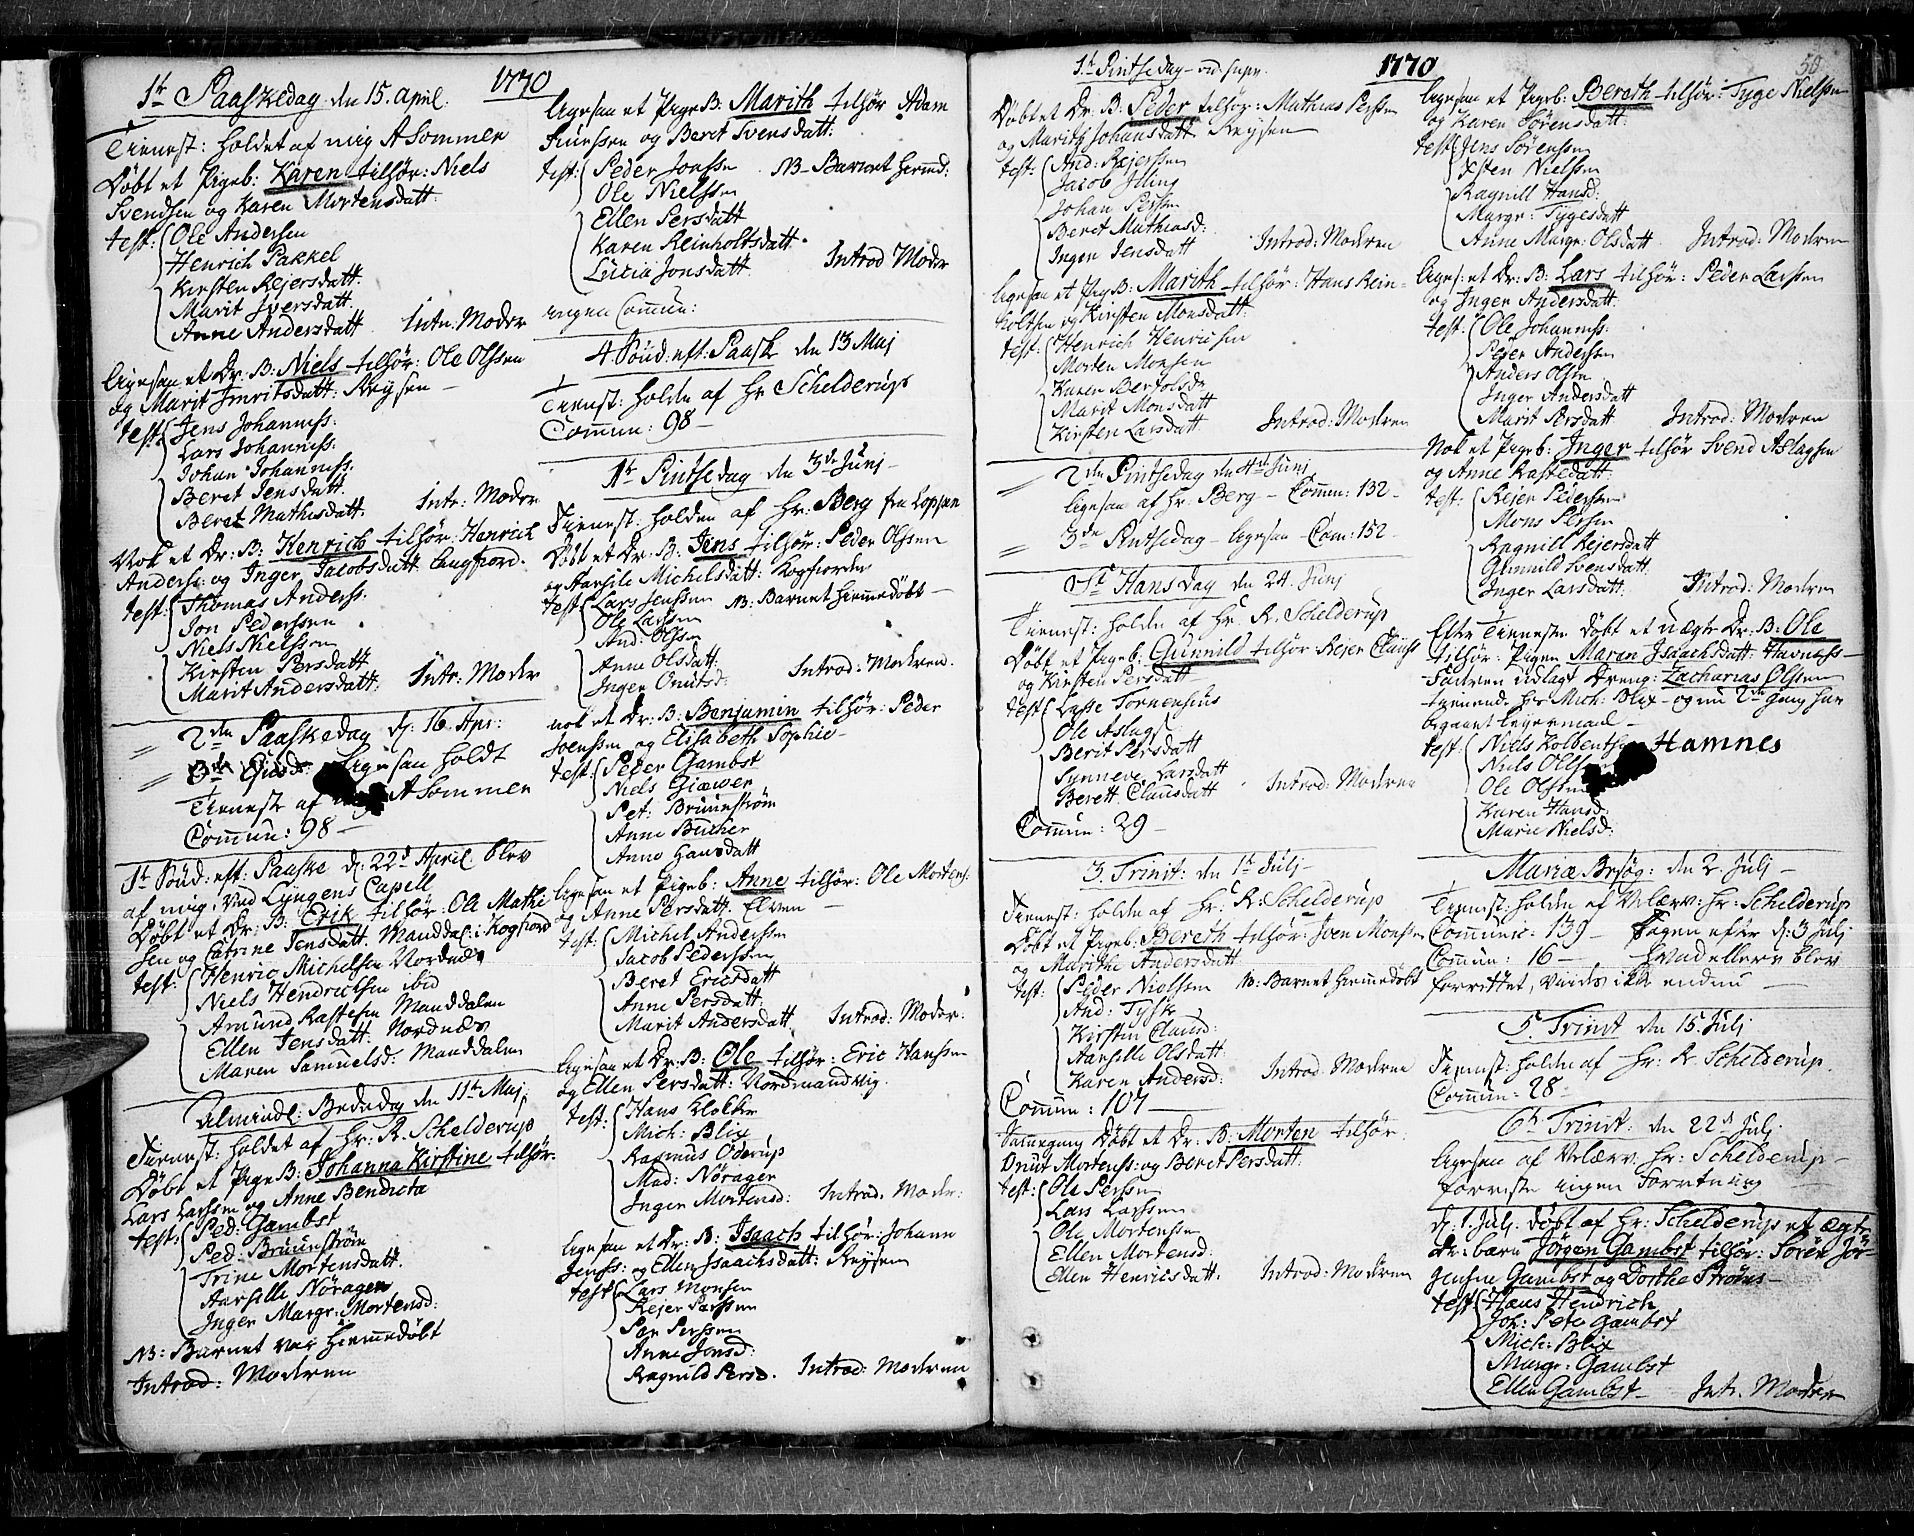 1770
1t Paaskedag den 15. April.
Tienest: holdet af mig A Sommer
Døbt et Pigeb: Karen tilhør: Niels
Svendsen og Karen Mortensdatt:
test: Ole Andersen
Henrich Pakkel
Kirsten Rejersdatt:
Marit Iversdatt:
Anne Andersdatt Intr: Moder
ligesaa et Dr: B: Niels tilhør: Ole Olssen
og Marit Imritsdatt: Reysen
test: Jens Johanness:
Lars Johanness:
Johan Johanness:
Beret Jensdatt:
Beret Mathisdatt: Intr: Modr
Nok et Dr: B: Henrich tilhør: Henrich
Anders: og Inger Jacobsdatt: Langfiord.
test: Thomas Anderss:
Jon Pederssen
Niels Nielssen
Kirsten Persdatt
Marit Andersdatt: Intr: Moder
2den Paaskedag d: 16. Apr:
3de Ligesaa holdt
Tienest af mig A Sommer
Commun: 98
1t Sønd: eft: Paaske d: 22d April blev
af mig, ved Lyngens Capell
Døbt et Dr: B: Erik tilhør: Ole Mathi
sen og Catrine Jensdatt. Manddal: i Kogfiord
test: Henric Michelsen Nordnæs
Niels Hendrichsen ibid
Amund Rastesen Manddalen
Ellen Jensdatt: Nordnæs
Maren Samuelsd: Manddalen
Almindel: Bededag den 11te Maj
Tienest: holdet af Hr: R. Schelderup
Døbt et Pige B: Johanna Kirstine tilhør:
Lars Larssen og Anne Bendicta
test: Ped: Gambst
Ped: Bruunstrøm
Trine Mortensdatt:
Aarselle Nørager
Inger Margr: Mortensd:
NB: Barnet var hiemmedøbt
Introd: Modren
ligesaa et Pige B: Marith tilhør Adam
og Beret Svensdatt:
test: Peder Jonssen NB Barnet hiemd:
Ole Nielssen
Ellen Persdatt
Karen Reinholtsdatt.
Lucia Jonsdatt Introd Moder
ingen Commun:
4 Sønd: eft: Paask den 13 Maj
Tienest: holden af Hr Schelderup
Commun: 98
1t Pintsedag den 3de Junj
Tienest: holden af Hr: Berg fra Loppen
Døbt et Dr: B: Jens tilhør: Peder Olssen
og Aarsile Michelsdatt: Kogfiorden
test Lars Jenssen NB: Barnet hiemmedøbt
Ole Larssen
And: Olssen
Anne Olsdatt:
Inger Cnutsd: Introd: Modren.
nok et Dr: B: Benjamin tilhør: Peder
Joenssen og Elisabeth Sophie
test: Peder Gambst
Niels Giæwer
Pet: Bruunstrøm
Anne Bucher
Anne Hansdatt
ligesaa et Pigeb: Anne tilhør: Ole Mortens:
og Anne Persdatt: Elven
test: Michel Anderssen
Jacob Pederssen
Beret Ericsdatt
Anne Persdatt:
Marit Andersdatt, Introd: Moder:
ligesaa et Dr: B: Ole tilhør: Eric Hanssen
og Ellen Persdatt: Nordmandvig.
test: Hans Klokker
Mich: Blix
Rasmus Oderup
Mad: Nørager
Inger Mortensd: Introd: Moder:
ligesaa et Dr: B: Isaach tilhør: Johann
Jenss: og Ellen Isaachsdatt: Reysen
test Lars Monsen
Rejer Larssen
Per Perssen
Anne Jonsd:
Ragnild Persd. Introd: Modren
1770
50
1t Pintsedag vid: supr.
Døbt et Dr: B: Peder tilhør: Mathias Perssen
og Marith Johansdatt Reysen
test: And: Rejerssen
Jacob Illing
Johan Perssen
Beret Mathiasd:
Inger Jensdatt Introd: Modren
ligesaa et Pige B: Marith tilhør: Hans Rein-
holtsen og Kirsten Monsdatt:
test: Henrich Henrichsen
Morten Monsen
Karen Bertolsd:
Marit Monsdatt
Kirsten Larsdatt Introd: Modren
2den Pintsedag den 4de Junj
ligesaa af Hr: Berg Commun: 132
3de Pintsedag ligesaa Com: 152
St Hans dag den 24. Junj
Tienest: holden af Hr. R. Schelderup
Døbt et Pigeb: Gunnild tilhør Rejer Clauss
og Kirsten Persdatt
test: Lasse Tornensius
Ole Aslags
Berit Persdatt
Synneve Larsdatt
Berett Clausdatt Introd: Modren
Commun: 29
3. Trinit: den 1te Julj
Tienest: holden af Hr: R: Schelderup
Døbt et Pigeb: Bereth tilhør: Iven Monssen
og Marithe Andersdatt
test: Peder Nielssen NB: Barnet hiemmedøbt
And: Tysk
Kirsten Clausd:
Aarselle Olsdatt:
Karen Andersd: Introd: Modren
Commun: 107
Døbt et Dr: B: Morten tilhør:
Cnut Mortenss: og Beret Persdatt:
test: Ole Perssen
Lars Larssen
Ole Mortensen
Ellen Mortensd:
Ellen Henricsdatt. Introd: Modren
ligesaa et Pigeb: Bereth tilhør: Tyge Nielssen
og Karen Sørensdatt:
test Jens Sørenssen
Nielssen
Ragnill Hansd:
Margr: Tygesdatt
Anne Margr: Olsdatt Introd: Modren
liges: et Dr: B: Lars tilhør: Peder Larssen
og Inger Andersdatt:
test: Ole Johanness:
Peder Anderssen
Anders Olsen
Inger Andersdatt
Marit Persdatt Introd: Modren
Nok et Pigeb: Inger tilhør Svend Aslagsen
og Anne Rastedatt
test: Rejer Pederssen
Mons Perssen
Ragnill Rejersdatt
Gunnild Svensdatt:
Inger Larsdatt: Introd: Modren
Efter Tienesten døbt et uægte Dr: B: Ole
tilhør: Pigen Maren Isaachsdatt: Havnnæss
Fadren udlagt Dreng: Zacharias Olssen
tienend: hos Mich: Blix og nu 2den gang har
begaaet leyermaal
test: Niels Kolbentsen Hamnes
Niels Olssen
Ole Olssen
Karen Hansd:
Marie Nielsd:
Mariæ Besøg: den 2. Julj
Tienest: holden af Velærv: Hr: Schelderup
Commun: 139 Dagen efter d: 3 Julj
Commun: 16 hvad ellers blev
forrettet, viides ikke endnu
5. Trinit den 15. Julj
Tienest: holden af Hr: R: Schelderup
Commun: 28
6te Trinit: den 22d Julj
ligesaa af Velærv: Hr: Schelderup
forreste ingen Forretning
d: 1. Julj: døbt af Hr: Schelderup et ægte
Dr: barn Jørgen Gambst tilhør: Søren Jør-
gensen Gambst og Dorthe Strøms
test Hans Hendrich
Joh: Peter Gambst
Mich: Blix
Margr: Gambst
Ellen Gambst Intr. Modren